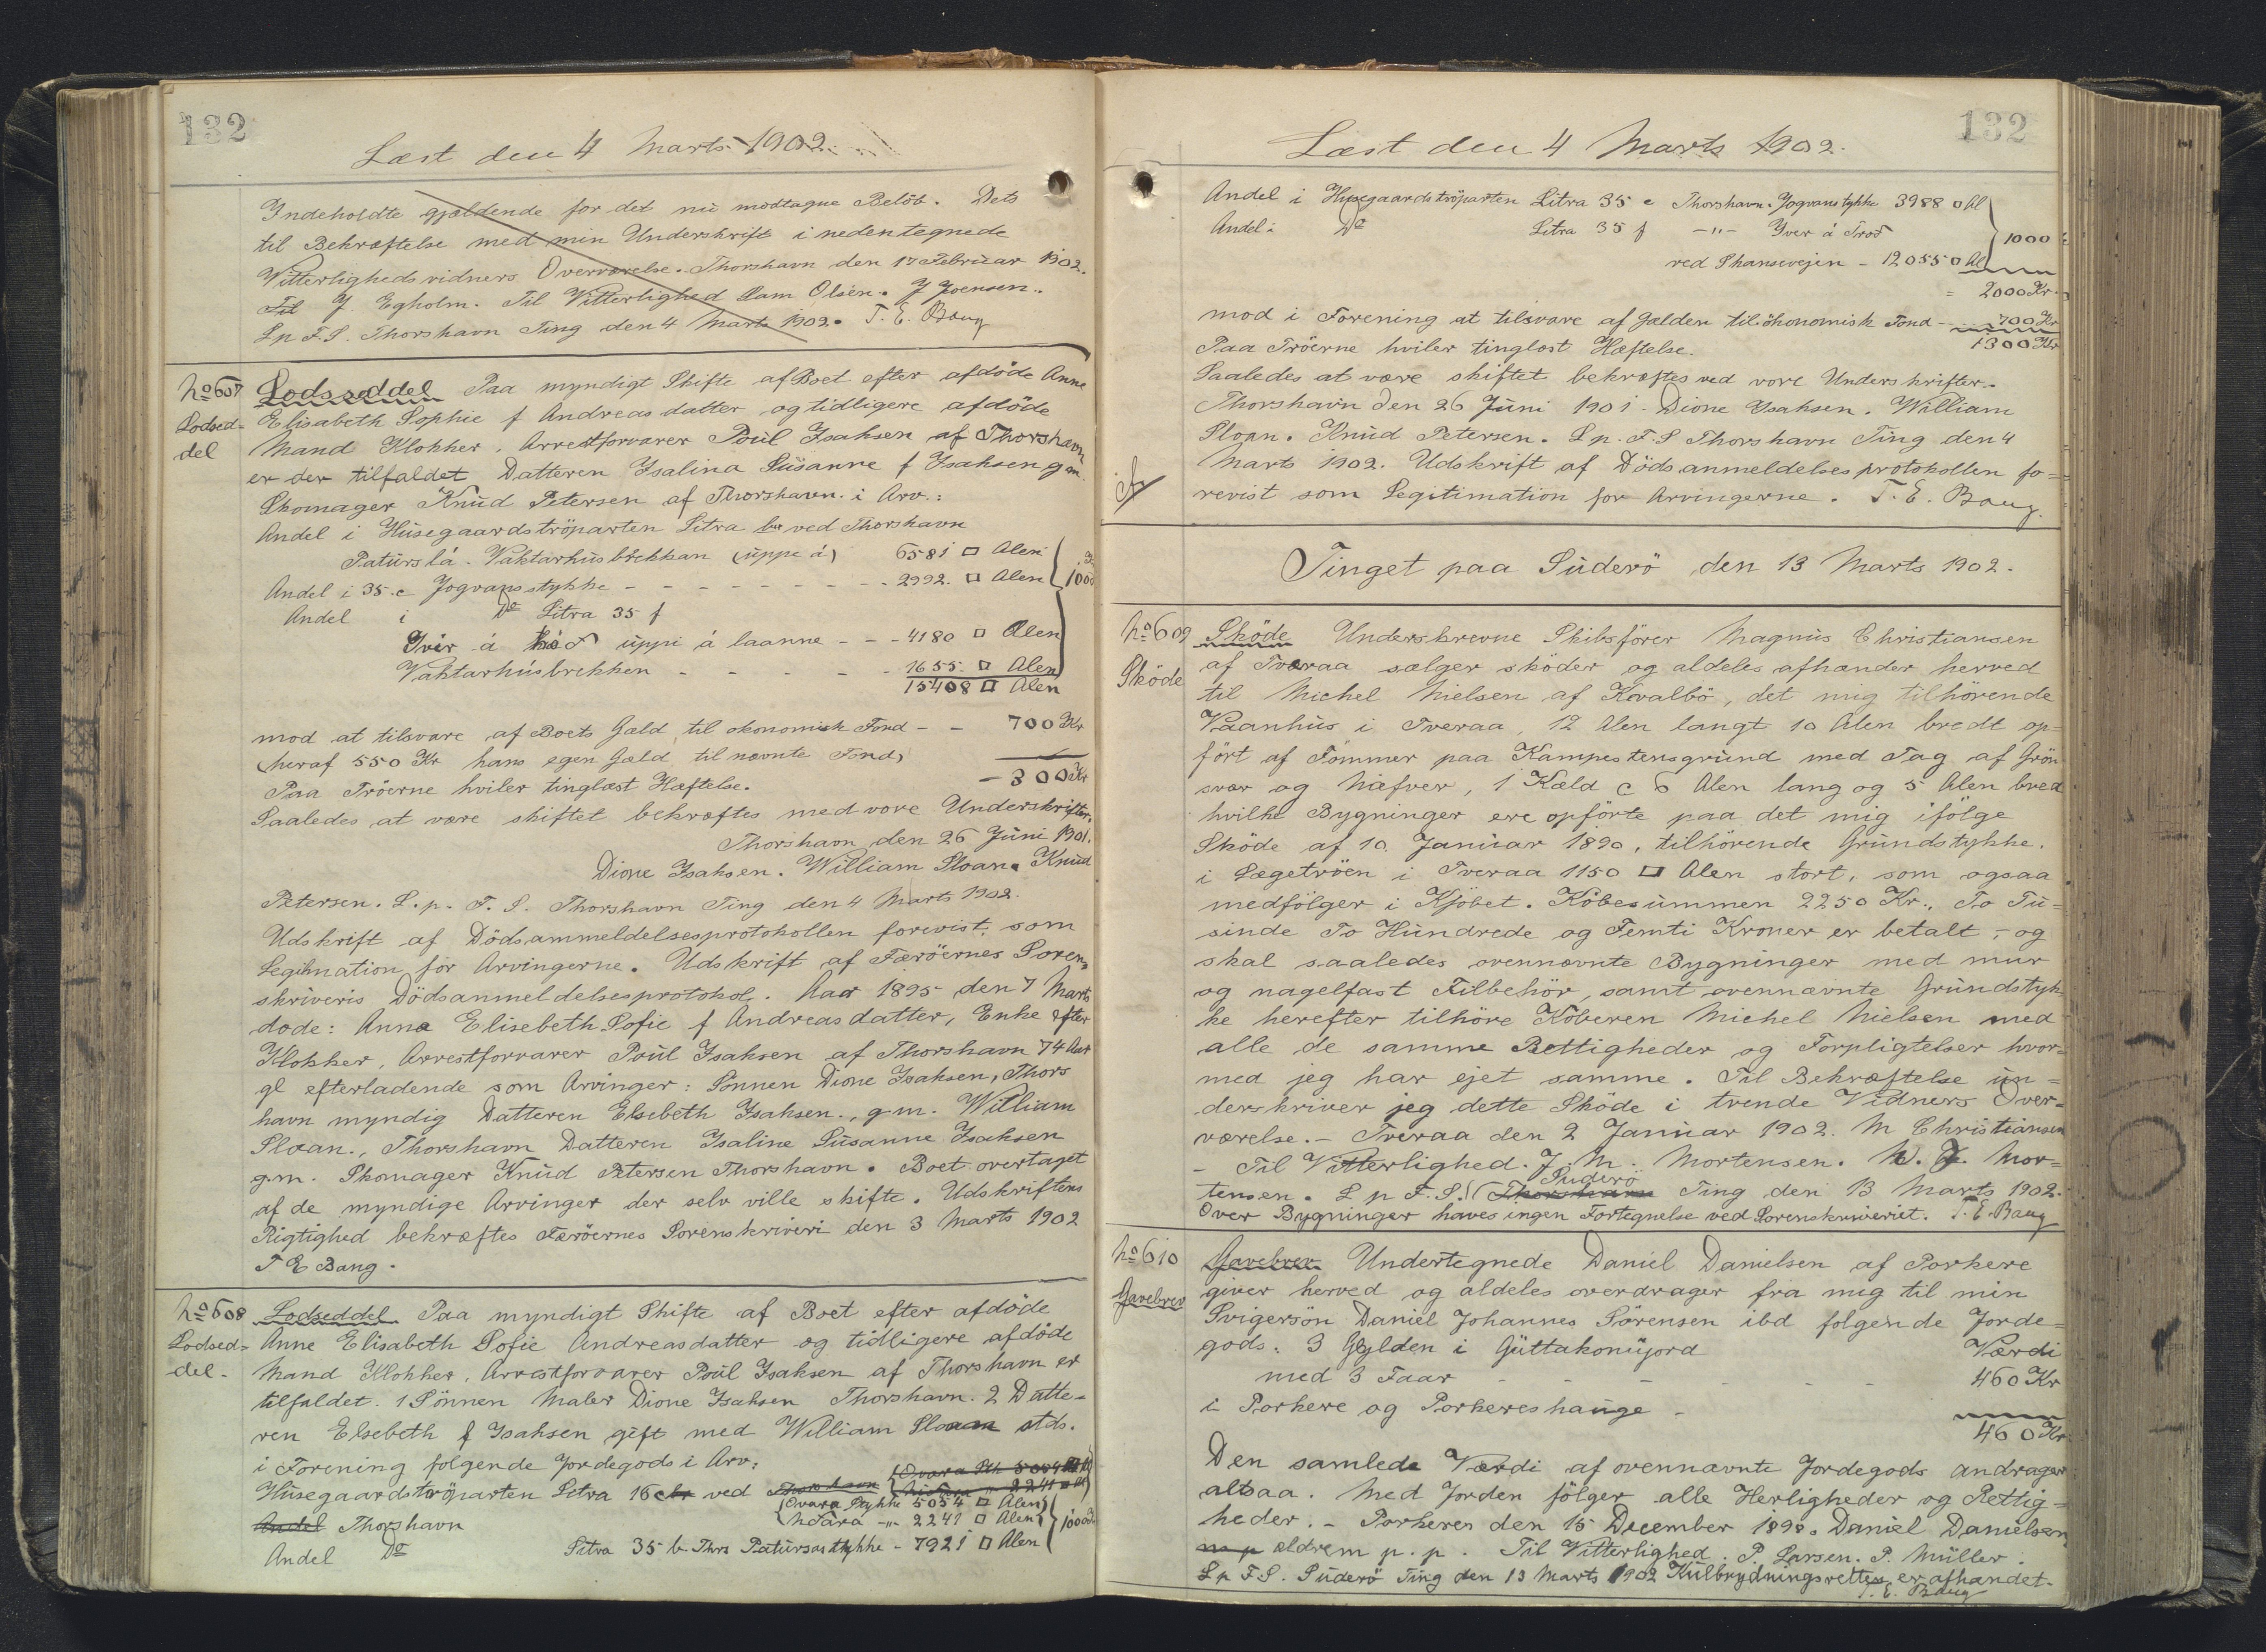 132
Læst den 4 Marts 1902.
Indeholdte gjældende for det nu modtagne Belöb. Dets
til Bekræftelse med min Underskrift i nedentegnede
Vitterligheds vidners Overværelse. Thorshavn den 17 Februar 1902.
Til J. Egholm. Til Vitterlighed Sam Olsen. J Joensen.
Lp F. S. Thorshavn Ting den 4 Marts 1902. T. E. Bang
No 607 Lodsseddel Paa myndigt Skifte af Boet efter afdöde Anne
Lodsed- Elisabeth Sophie f Andreasdatter og tidligere afdöde
del Mand Klokker, Arrestforvarer Poul Isaksen af Thorshavn
er der tilfaldet Datteren Isalina Susanne f Isaksen gm.
Skomager Knud Petersen af Thorshavn. i Arv.:
Andel i Húsegaardströparten Litra br ved Thorshavn
Patursla - Vaktarhusbrekkan (uppe á) 6581 □ Alen
Andel i 35.e Jogvans stykke - - - - - - - - 2992. □ Alen 1000
Andel i Do Litra 35 f
Yvir á uppi á laanne - - - 4180 □ Alen
Vaktarhúsbrekken - - - - - 1655 □ Alen
15408 □ Alen
mod at tilsvare af Boets Gæld til okonomisk Fond - - 700 Kr
(heraf 550 Kr hans egen Gæld til nævnte Fond)
- 300 Kr
Paa Tröerne hviler tinglæst Hæftelse.
Saaledes at være skiftet bekræftes med vore Underskrifter.
Thorshavn den 26 Juni 1901.
Dione Isaksen. William Sloan. Knud
Petersen. L. p. F. S. Thorshavn Ting den 4 Marts 1902.
Udskrift af Dödsammeldelsesprotokollen forevist. som
Legitimation for Arvingerne. Udskrift af Færöernes Soren-
skriveris Dödsanmeldelsesprotokol. Aar 1895 den 7 Marts
døde: Anna Elisebeth Sofie f Andreasdatter, Enke efter
Klokker, Arrestforvarer Poul Isaksen af Thorshavn 74 Aar
gl efterladende som Arvinger: Sønnen Dione Isaksen, Thors
havn myndig Datteren Elsebeth Isaksen., g.m. William
Sloan., Thorshavn Datteren Isaline Susanne Isaksen
g.m. Skomager Knud Petersen Thorshavn. Boet overtaget
af de myndige Arvinger der selv ville skifte. Udskriftens
Rigtighed bekræftes Færöernes Sorenskriveri den 3 Marts 1902
T E Bang.
No 608 Lodseddel Paa myndigt Skifte af Boet efter afdöde
Lodsed- Anne Elisabeth Sofie Andreasdatter og tidligere afdöde
del. Mand Klokker, Arrestforvarer Poul Isaksen af Thorshavn er
tilfaldet. 1 Sönnen Maler Dione Isaksen Thorshavn. 2 Datte-
ren Elsebeth f Isaksen gift med William Sloan stds.
i Forening følgende Jordegods i Arv:
Húsegaardströparten Litra 16 ved Thorshavn
Ovara Stykke 5054 □ Alen
Andel Thorshavn Nidara -"- 2241 □ Alen 1000
Andel Do Litra 35 b. Thrs Patursas stykke - 7921 □ Alen
132
Læst den 4 Marts 1902.
Andel i Husegaardströparten Litra 35 e Thorshavn. Jogvans tykke 3988 □ Al
Andel i Do Litra 35 f -"- Yver á Trod 1000
ved Skansevejen - 12055 □ Al
= 2000 Kr.
mod i Forening at tilsvare af Gælden til ökonomisk Fond - 700 Kr
Paa Tröerne hviler tinglæst Hæftelse. 1300 Kr
Saaledes at være skiftet bekræftes ved vore Underskrifter.
Thorshavn den 26 Juni 1901. Dione Isaksen. William
Sloan. Knud Petersen. Lp. F. S Thorshavn Ting den 4
Marts 1902. Udskrift af Dödsanmeldelsesprotokollen fo-
revist som Legitimation for Arvingerne. T. E. Bang.
Tinget paa Suderö den 13 Marts 1902.
No 609 Sköde Underskrevne Skibsförer Magnus Christiansen
Sköde af Tveraa sælger sköder og aldeles afhænder herved
til Michel Nielsen af Kvalbö, det mig tilhörende
Vaanhus i Tveraa, 12 Alen langt 10 Alen bredt op-
fört af Tömmer paa Kampestensgrund med Tag af Grön
svær og Næfver, 1 Kæld c 6 Alen lang og 5 Alen bred
hvilke Bygninger ere opförte paa det mig ifölge
Sköde af 10 Januar 1890, tilhörende Grundstykke.
i Lægetröen i Tveraa 1150 □ Alen stort, som ogsaa
medfölger i Kjöbet. Köbesummen 2250 Kr., To Tu-
sinde To Hundrede og Femti Kroner er betalt, - og
skal saaledes ovennævnte Bygninger med mur
og nagelfast Tilbehör, samt ovennævnte Grundstyk-
ke herefter tilhöre Köberen Michel Nielsen med
alle de samme Rettigheder og Forpligtelser hvor-
med jeg har ejet samme. Til Bekræftelse un-
derskriver jeg dette Sköde i tvende Vidners Over-
værelse. - Tveraa den 2 Januar 1902. M Christiansen
- Til Vitterlighed. J. M. Mortensen. W. J. Mor-
Suderö
tensen. L p F. S. Thorshavn Ting den 13 Marts 1902.
Over Bygninger haves ingen Fortegnelse ved Sorenskriveriet. T. E. Bang
No 610 Gavebrev Undertegnede Daniel Danielsen af Porkere
Gavebrev giver herved og aldeles overdrager fra mig til min
Svigersön Daniel Johannes Sörensen ibd følgende Jorde-
gods: 3 Gylden i Guttakonujord Værdi
med 3 Faar - - - - - - 460 Kr
i Porkere og Porkereshauge -
460 Kr
Den samlede Værdi af ovennævnte Jordegods andrager
altsaa. Med Jorden fölger alle Herligheder og Rettig-
heder. - Porkeres den 15 December 1898. Daniel Danielsen
m p ældre m p. p. Til Vitterlighed. P. Larsen. P. Müller.
Lp F S. Suderö Ting den 13 Marts 1902 Kulbrydningsretten er afhændet.
T. E. Bang